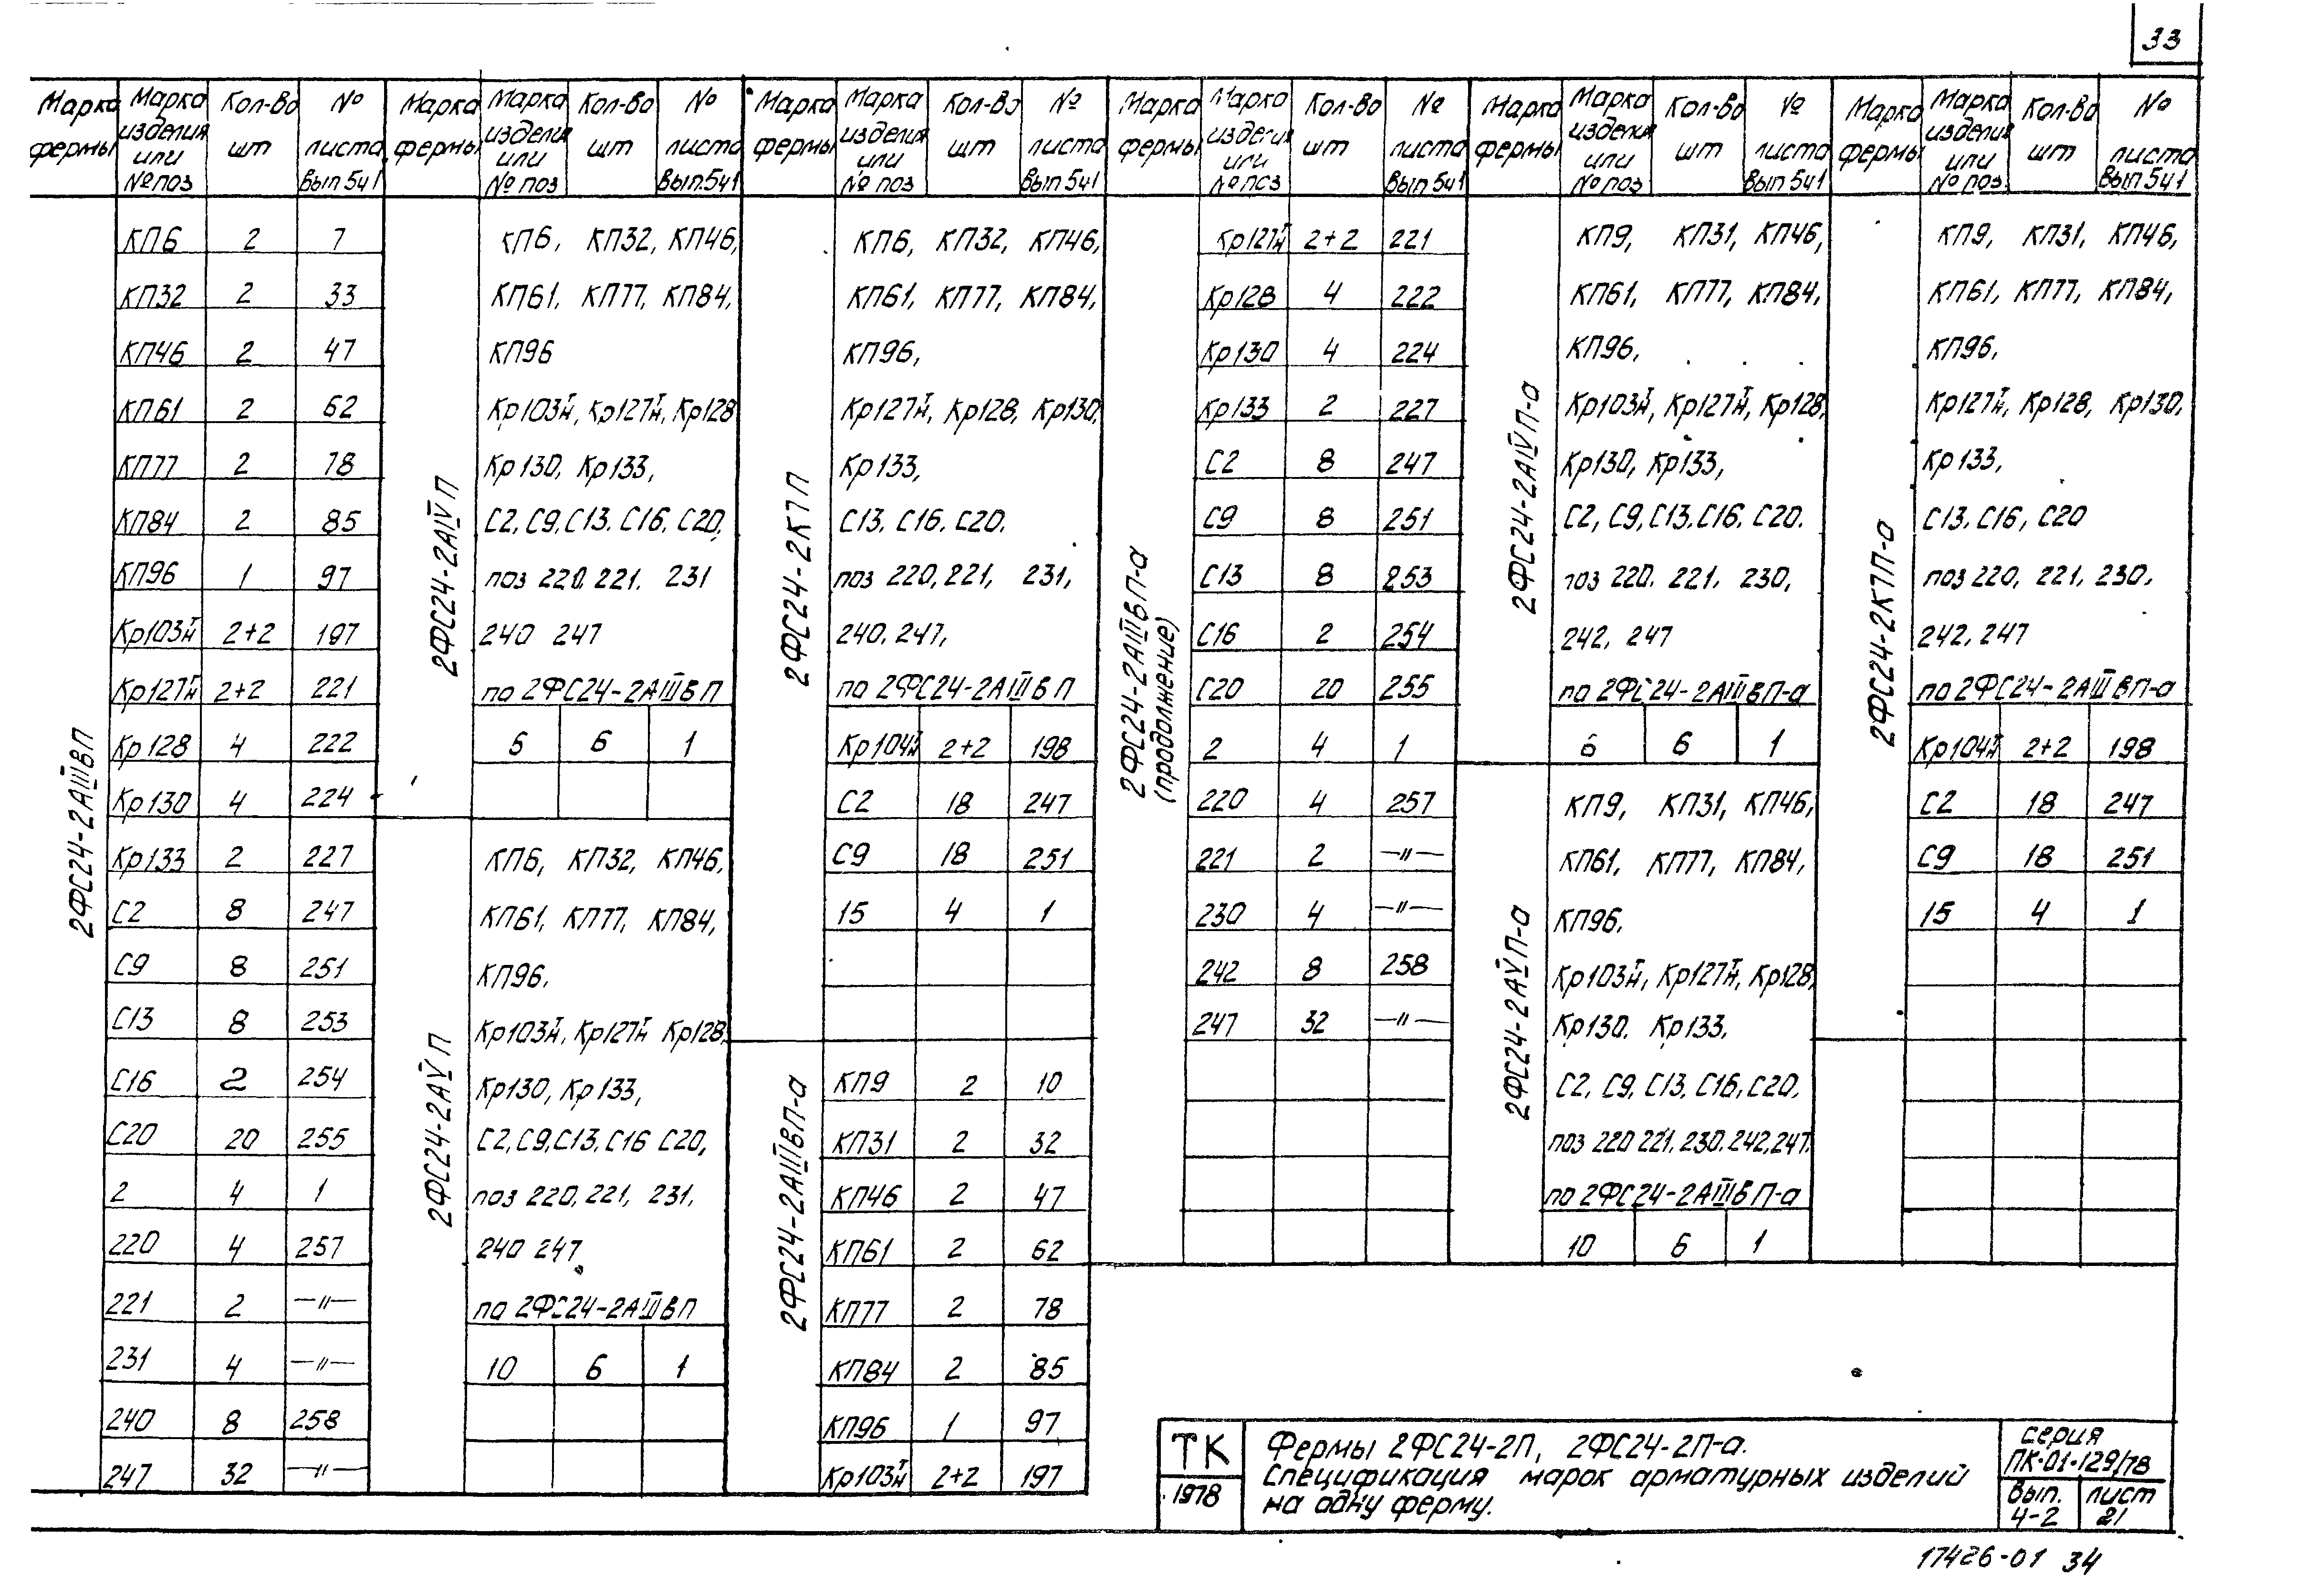 33
Марка фермы | Марка изделия или № поз | Кол-во шт | № листа Вып 5ч1
2ФС24-2АIIIВП
КП6 2 7
КП32 2 33
КП46 2 47
КП61 2 62
КП77 2 78
КП84 2 85
КП96 1 97
Кр103 I/H 2+2 197
Кр127 I/H 2+2 221
Кр128 4 222
Кр130 4 224
Кр133 2 227
С2 8 247
С9 8 251
С13 8 253
С16 2 254
С20 20 255
2 4 1
220 4 257
221 2 —"—
231 4 —"—
240 8 258
247 32 —"—
Марка фермы | Марка изделия или № поз | Кол-во шт | № листа Вып.5ч1
2ФС24-2АIVП
КП6, КП32, КП46,
КП61, КП77, КП84,
КП96
Кр103 I/H, Кр127 I/H, Кр128
Кр130, Кр133,
С2, С9, С13. С16, С20,
поз 220, 221. 231
240 247
по 2ФС24-2АIIIВП
6 1
2ФС24-2АVП
КП6, КП32, КП46,
КП61, КП77, КП84,
КП96.
Кр103 I/H, Кр127 I/H Кр128,
Кр130, Кр133,
С2, С9, С13, С16 С20,
поз 220, 221, 231,
240 247
по 2ФС24-2АIIIВП
10 6 1
Марка фермы | Марка изделия или № поз | Кол-во шт | № листа Вып 5ч1
2ФС24-2К7П
КП6, КП32, КП46,
КП61, КП77, КП84,
КП96,
Кр127 I/H, Кр128, Кр130,
Кр133,
С13, С16. С20.
поз 220, 221, 231,
240, 247,
по 2ФС24-2АIIIВП
Кр104 I/H 2+2 198
С2 18 247
С9 18 251
15 4 1
2ФС24-2АIIIВП-а
КП9 2 10
КП31 2 32
КП46 2 47
КП61 2 62
КП77 2 78
КП84 2 85
КП96 1 97
Кр103 I/H 2+2 197
Марка фермы | Марка изделия или № поз | Кол-во шт | № листа Вып 5ч1
2ФС24-2АIIIВП-а
(продолжение)
Кр127 I/H 2+2 221
Кр128 4 222
Кр130 4 224
Кр133 2 227
С2 8 247
С9 8 251
С13 8 253
С16 2 254
С20 20 255
2 4 1
220 4 257
221 2 —"—
230 4 —"—
242 8 258
247 32 —"—
Марка фермы | Марка изделия или № поз | Кол-во шт | № листа Вып 5ч1
2ФС24-2АIVП-а
КП9, КП31, КП46,
КП61, КП77, КП84,
КП96,
Кр103 I/H, Кр127 I/H, Кр128,
Кр130, Кр133,
С2, С9, С13. С16. С20.
поз 220. 221. 230,
242, 247
по 2ФС24-2АIIIВП-а
6 6 1
2ФС24-2АVП-а
КП9, КП31, КП46,
КП61, КП77, КП84,
КП96.
Кр103 I/H, Кр127 I/H, Кр128,
Кр130. Кр133,
С2, С9, С13, С16, С20,
поз 220 221, 230. 242, 247.
по 2ФС24-2АIIIВП-а
10 6 1
Марка фермы | Марка изделия или № поз. | Кол-во шт | № листа Вып 5ч1
2ФС24-2К7П-а
КП9, КП31, КП46,
КП61, КП77, КП84,
КП96,
Кр127 I/H, Кр128, Кр130,
Кр133,
С13. С16, С20
поз 220, 221, 230,
242, 247
по 2ФС24-2АIIIВП-а
Кр104 I/H 2+2 198
С2 18 247
С9 18 251
15 4 1
ТК
1978
Фермы 2ФС24-2П, 2ФС24-2П-а.
Спецификация марок арматурных изделий
на одну ферму.
серия
ПК-01-129/78
Вып. 4-2
лист 21
17426-01 34